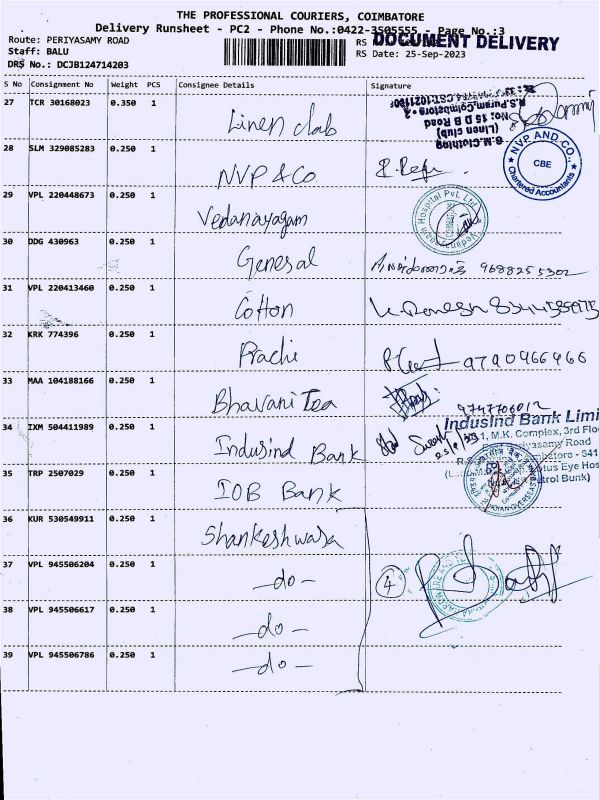 THE PROFESSIONAL COURIERS, COIMBATORE
Delivery Runsheet - PC2 - Phone No.:0422-3505555 Page No.:3
Route: PERIYASAMY ROAD
RS
DOCUMENT DELIVERY
Staff: BALU
RS Date: 25-Sep-2023
DRS No.: DCJB124714203
S No Consignment No Weight PCS Consignee Details Signature
27 TCR 30168023 0.350 1 Linen club
G.M.Clothing
(Linen club)
No: 16 D B Road
R.S.Puram, Coimbatore - 2
28 SLM 329085283 0.250 1 NVP & Co
NVP AND CO.,
CBE
Chartered Accountants
29 VPL 220448673 0.250 1 Vedanayagam
Vedanayagam Hospital Pvt. Ltd.
30 DDG 430963 0.250 1 General 9688255302
31 VPL 220413460 0.250 1 Cotton
32 KRK 774396 0.250 1 Prachi 9790966966
33 MAA 104188166 0.250 1 Bhavani Tea
34 IXM 504411989 0.250 1 Indusind Bank
25/9/23
IndusInd Bank Limi
1, M.K. Complex, 3rd Floo
Periyasamy Road
mbatore - 641
Lotus Eye Hos
Petrol Bunk)
35 TRP 2507029 0.250 1 IOB Bank
INDIAN OVERSEAS
36 KUR 530549911 0.250 1 Shankeshwara
37 VPL 945506204 0.250 1 -do- 4
38 VPL 945506617 0.250 1 -do-
39 VPL 945506786 0.250 1 -do-